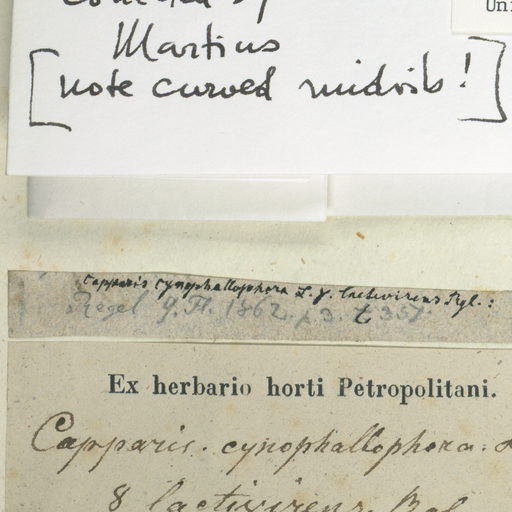 Uni
collected by
Martius
[note curved midrib!]
Capparis cynophallophora L. γ. lactivirens Rgl.:
Regel G. Fl. 1862. p 3. t 351.
Ex herbario horti Petropolitani.
Capparis. cynophallophora.
8 lactivirens. Rgl